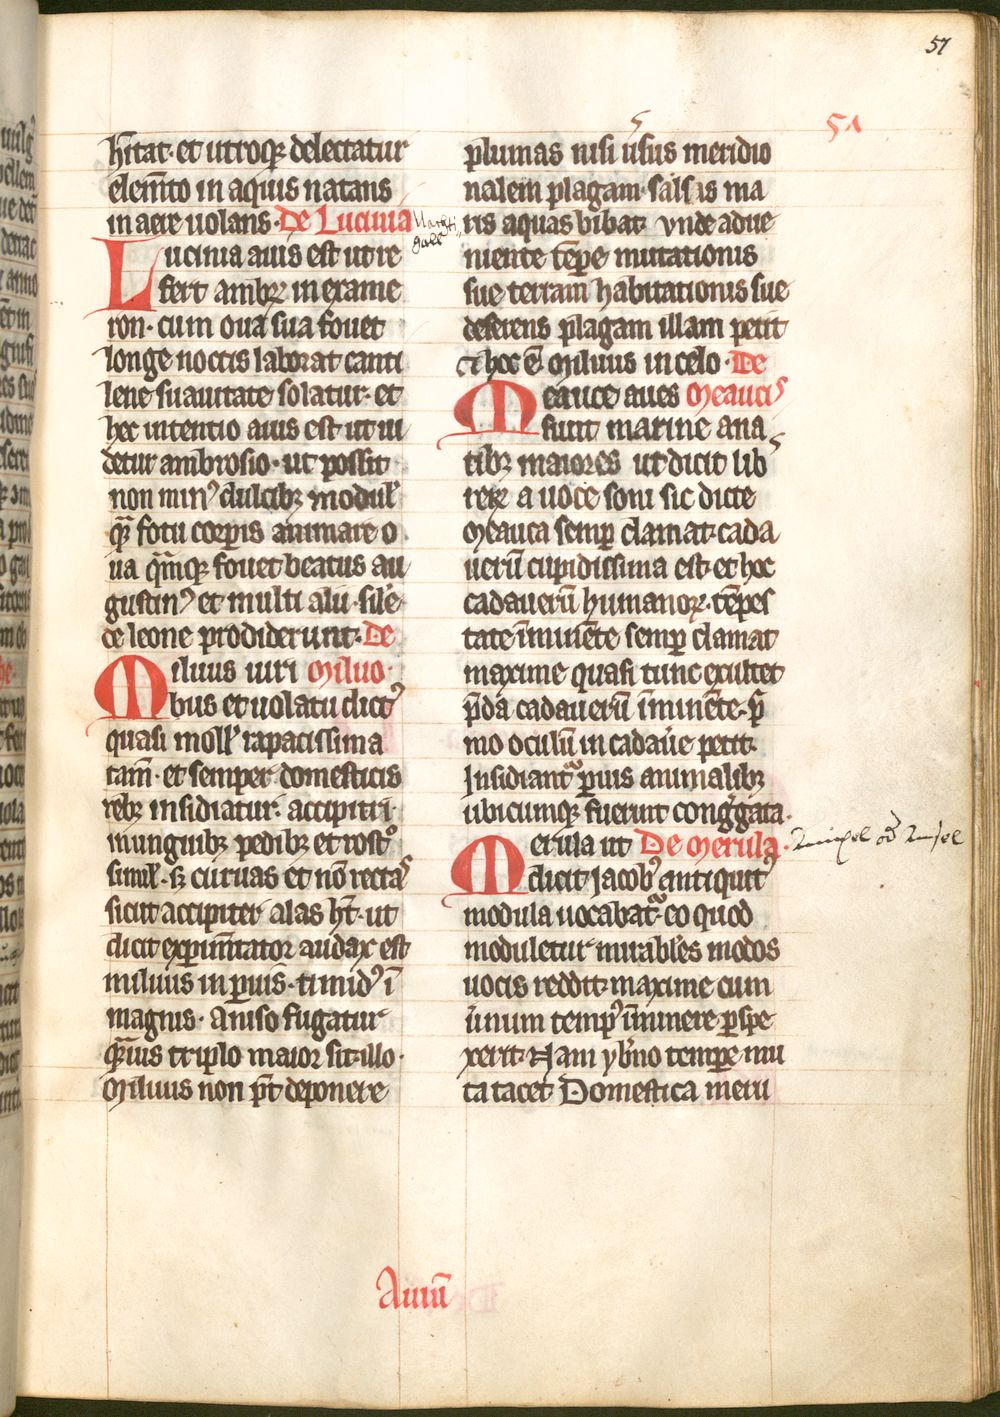 57
51
hītat · et utroqꝫ delectatur
elemēto in aquis natans
in aere uolans · De Lucinia
Nachti
gall
Lucinia auis est ut re
fert ambꝛꝫ in exame
ron · cum oua sua fouet
longe noctis laborat canti
lene suauitate solatur · et
hec intentio auis est ut ui
detur ambrosio · ut possit
non minꝰ dulcibꝫ modul'
qͣ fotu corꝑis animare o
ua qͣmqꝫ fouet beatus au
gustinꝰ et multi alii · sile
ce leone prodiderunt · De
Miluus uiri Miluo ·
bus et uolatu dictꝰ
quasi moll' rapacissima
tam̄ · et semper domesticis
rebꝫ insidiatur · accipitri ·
in unguibꝫ pedibꝫ et rostͦ
simil' · sꝫ curuas et nō rectaˢ
sicut accipiter alas hn̄t · ut
dicit expim̄tator audax est
miluus in ꝑuis · timidꝰ ī
magnis · A niso fugatur
qͣuis triplo maior sit illo ·
Miluus non pt̄ deponere
plumas nisi ūsus meridio
nalem plagam · salsis ma
ris aquas bibat · vnde adue
niente tēpe mutationis
sue terram habitationis sue
deserens plagam illam petit
et hoc ē Miluus in celo · De
Meauce aues Meaucis
sunt marine ana
tibꝫ maiores ut dicit lib
reꝝ a uoce soni sic dicte
Meauca semꝑ clamat · cada
uerū cupidissima est · et hoc
cadauerū humanoꝝ · tēpes
tate īminēte semꝑ clamat
maxime quasi tunc exultet
p̄da cadauerū īminēte · pͥ
mo oculū in cadaūe petit ·
Insidiantͬ ꝑuis animalibꝫ
ubicumqꝫ fuerint congͤgata ·
Merula ut De Merula ·
dicit Jacobꝰ antiquitꝰ
modula uocabatͬ eo quod
moduletur mirabiles modos
uocis reddit · maxime cum
ūnum tempꝰ īminere ꝑspe
xerit · Nam yb̄no tempe mu
ta tacet Domestica meru
Auiū